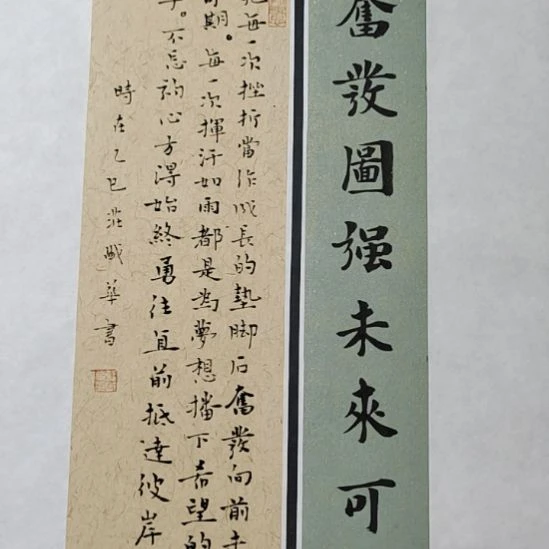 奮發圖强未來可
把每一次挫折當作成長的墊脚石奮發向前未
期。每一次揮汗如雨都是為夢想播下希望的
子。不忘初心方得始終勇往直前抵達彼岸
時在乙巳莊華書